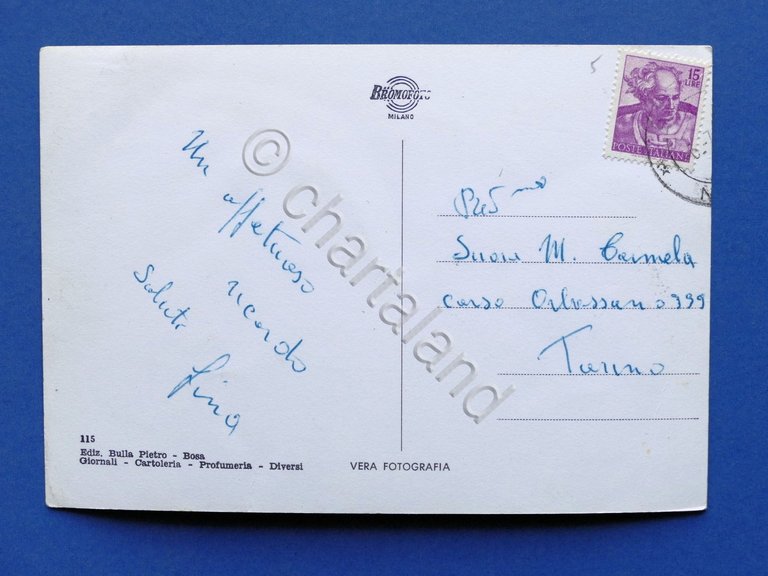 BROMOFOTO
MILANO
5
15
LIRE
POSTE ITALIANE
Un
affettuoso
ricordo
Saluti
Gina
Suora M. Carmela
corso Orbassano 399
Torino
115
Ediz. Bulla Pietro - Bosa
Giornali - Cartoleria - Profumeria - Diversi
VERA FOTOGRAFIA
© chartaland